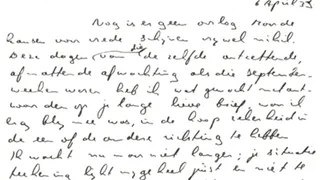 6 April 39
Nog is er geen oorlog maar de
kansen voor vrede schijnen vrywel nihil.
Deze dagen van die zelfde ontzettende,
afmattende afwachting als die September-
weken waren heb ik wat gewacht met ant-
woorden op je lange lieve brief, waar ik
erg bly mee was, in de hoop zekerheid in
de een of de andere richting te hebben
Ik wacht nu maar niet langer; je situatie
teekening lykt my geheel juist en niet te